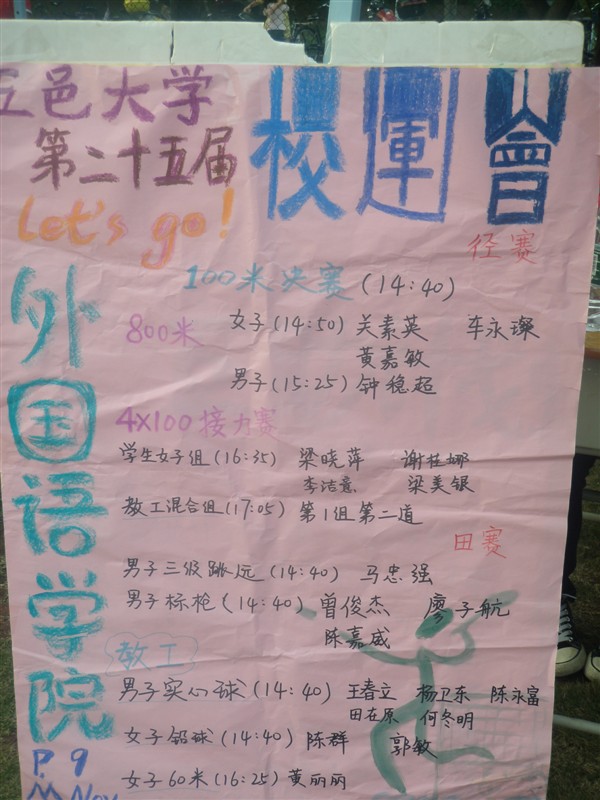 五邑大学
第二十五届
校運會
Let's go!
径赛
外国语学院
100米决赛 (14:40)
800米
女子(14:50) 关素英 车永璨
黄嘉敏
男子(15:25) 钟稳超
4X100接力赛
学生女子组(16:35) 梁晓萍 谢桂娜
李洁意 梁美银
教工混合组(17:05) 第1组第二道
田赛
男子三级跳远(14:40) 马忠强
男子标枪(14:40) 曾俊杰 廖子航
陈嘉威
教工
男子实心球(14:40) 王春立 杨卫东 陈永富
田在原 何冬明
女子铅球(14:40) 陈群 郭敏
女子60米(16:25) 黄丽丽
P. 9
Nov